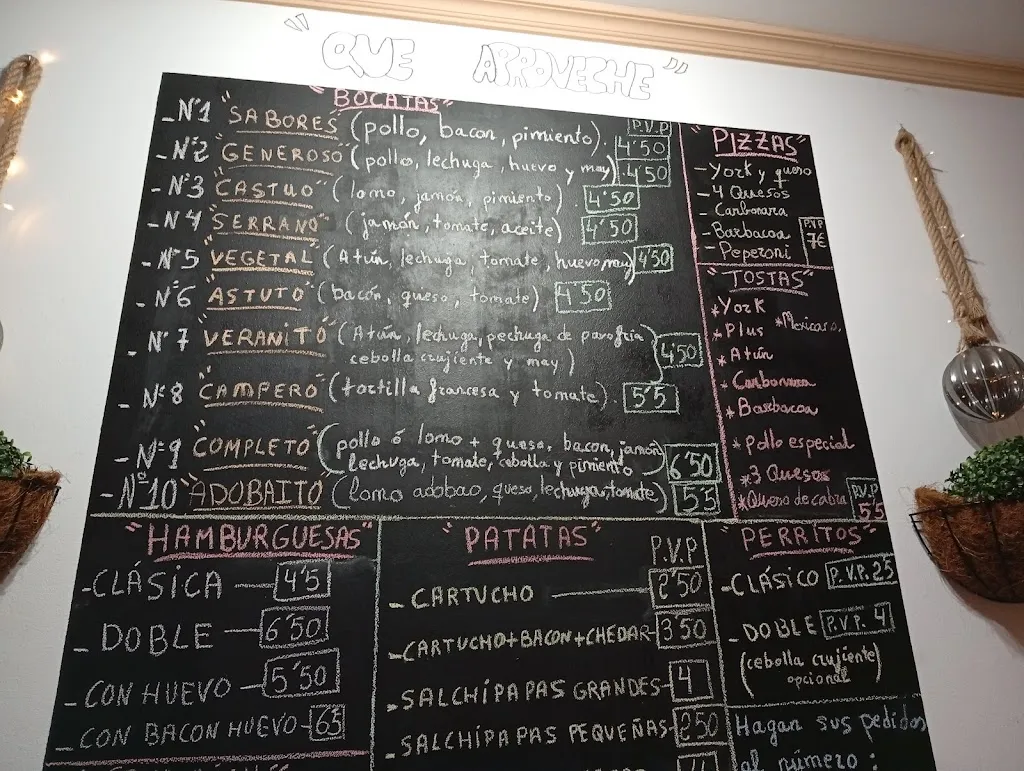 "QUE APROVECHE"
"BOCATAS"
P.V.P
-Nº1 "SABORES" (pollo, bacon, pimiento). 4'50
-Nº2 "GENEROSO" (pollo, lechuga, huevo y may) 4'50
-Nº3 "CASTUO" (lomo, jamón, pimiento) 4'50
-Nº4 "SERRANO" (jamón, tomate, aceite) 4'50
-Nº5 "VEGETAL" (Atún, lechuga, tomate, huevo may) 4'50
-Nº6 "ASTUTO" (bacón, queso, tomate) 4'50
-Nº7 "VERANITO" (Atún, lechuga, pechuga de pavo fria
cebolla crujiente y may) 4'50
-Nº8 "CAMPERO" (tortilla francesa y tomate). 5'5
-Nº9 "COMPLETO" (pollo ó lomo + queso, bacon, jamón,
lechuga, tomate, cebolla y pimiento 6'50
-Nº10 "ADOBAITO" (lomo adobao, queso, lechuga, tomate) 5'5
"PIZZAS"
-York y queso
-4 Quesos
-Carbonara
-Barbacoa
-Peperoni
P.V.P
7€
"TOSTAS"
*York
*Plus *Mexicana.
*Atún
*Carbonara
*Barbacoa
*Pollo especial
*3 Quesos
*Queso de cabra
P.V.P
5'5
"HAMBURGUESAS"
-CLÁSICA 4'5
-DOBLE 6'50
-CON HUEVO 5'50
-CON BACON HUEVO 6'5
"PATATAS"
P.V.P
-CARTUCHO 2'50
-CARTUCHO+BACON+CHEDAR 3'50
-SALCHIPAPAS GRANDES 4
-SALCHIPAPAS PEQUEÑAS 2'50
"PERRITOS"
-CLÁSICO P.V.P. 2'5
-DOBLE P.V.P. 4
(cebolla crujiente)
opcional
Hagan sus pedidos
al número: